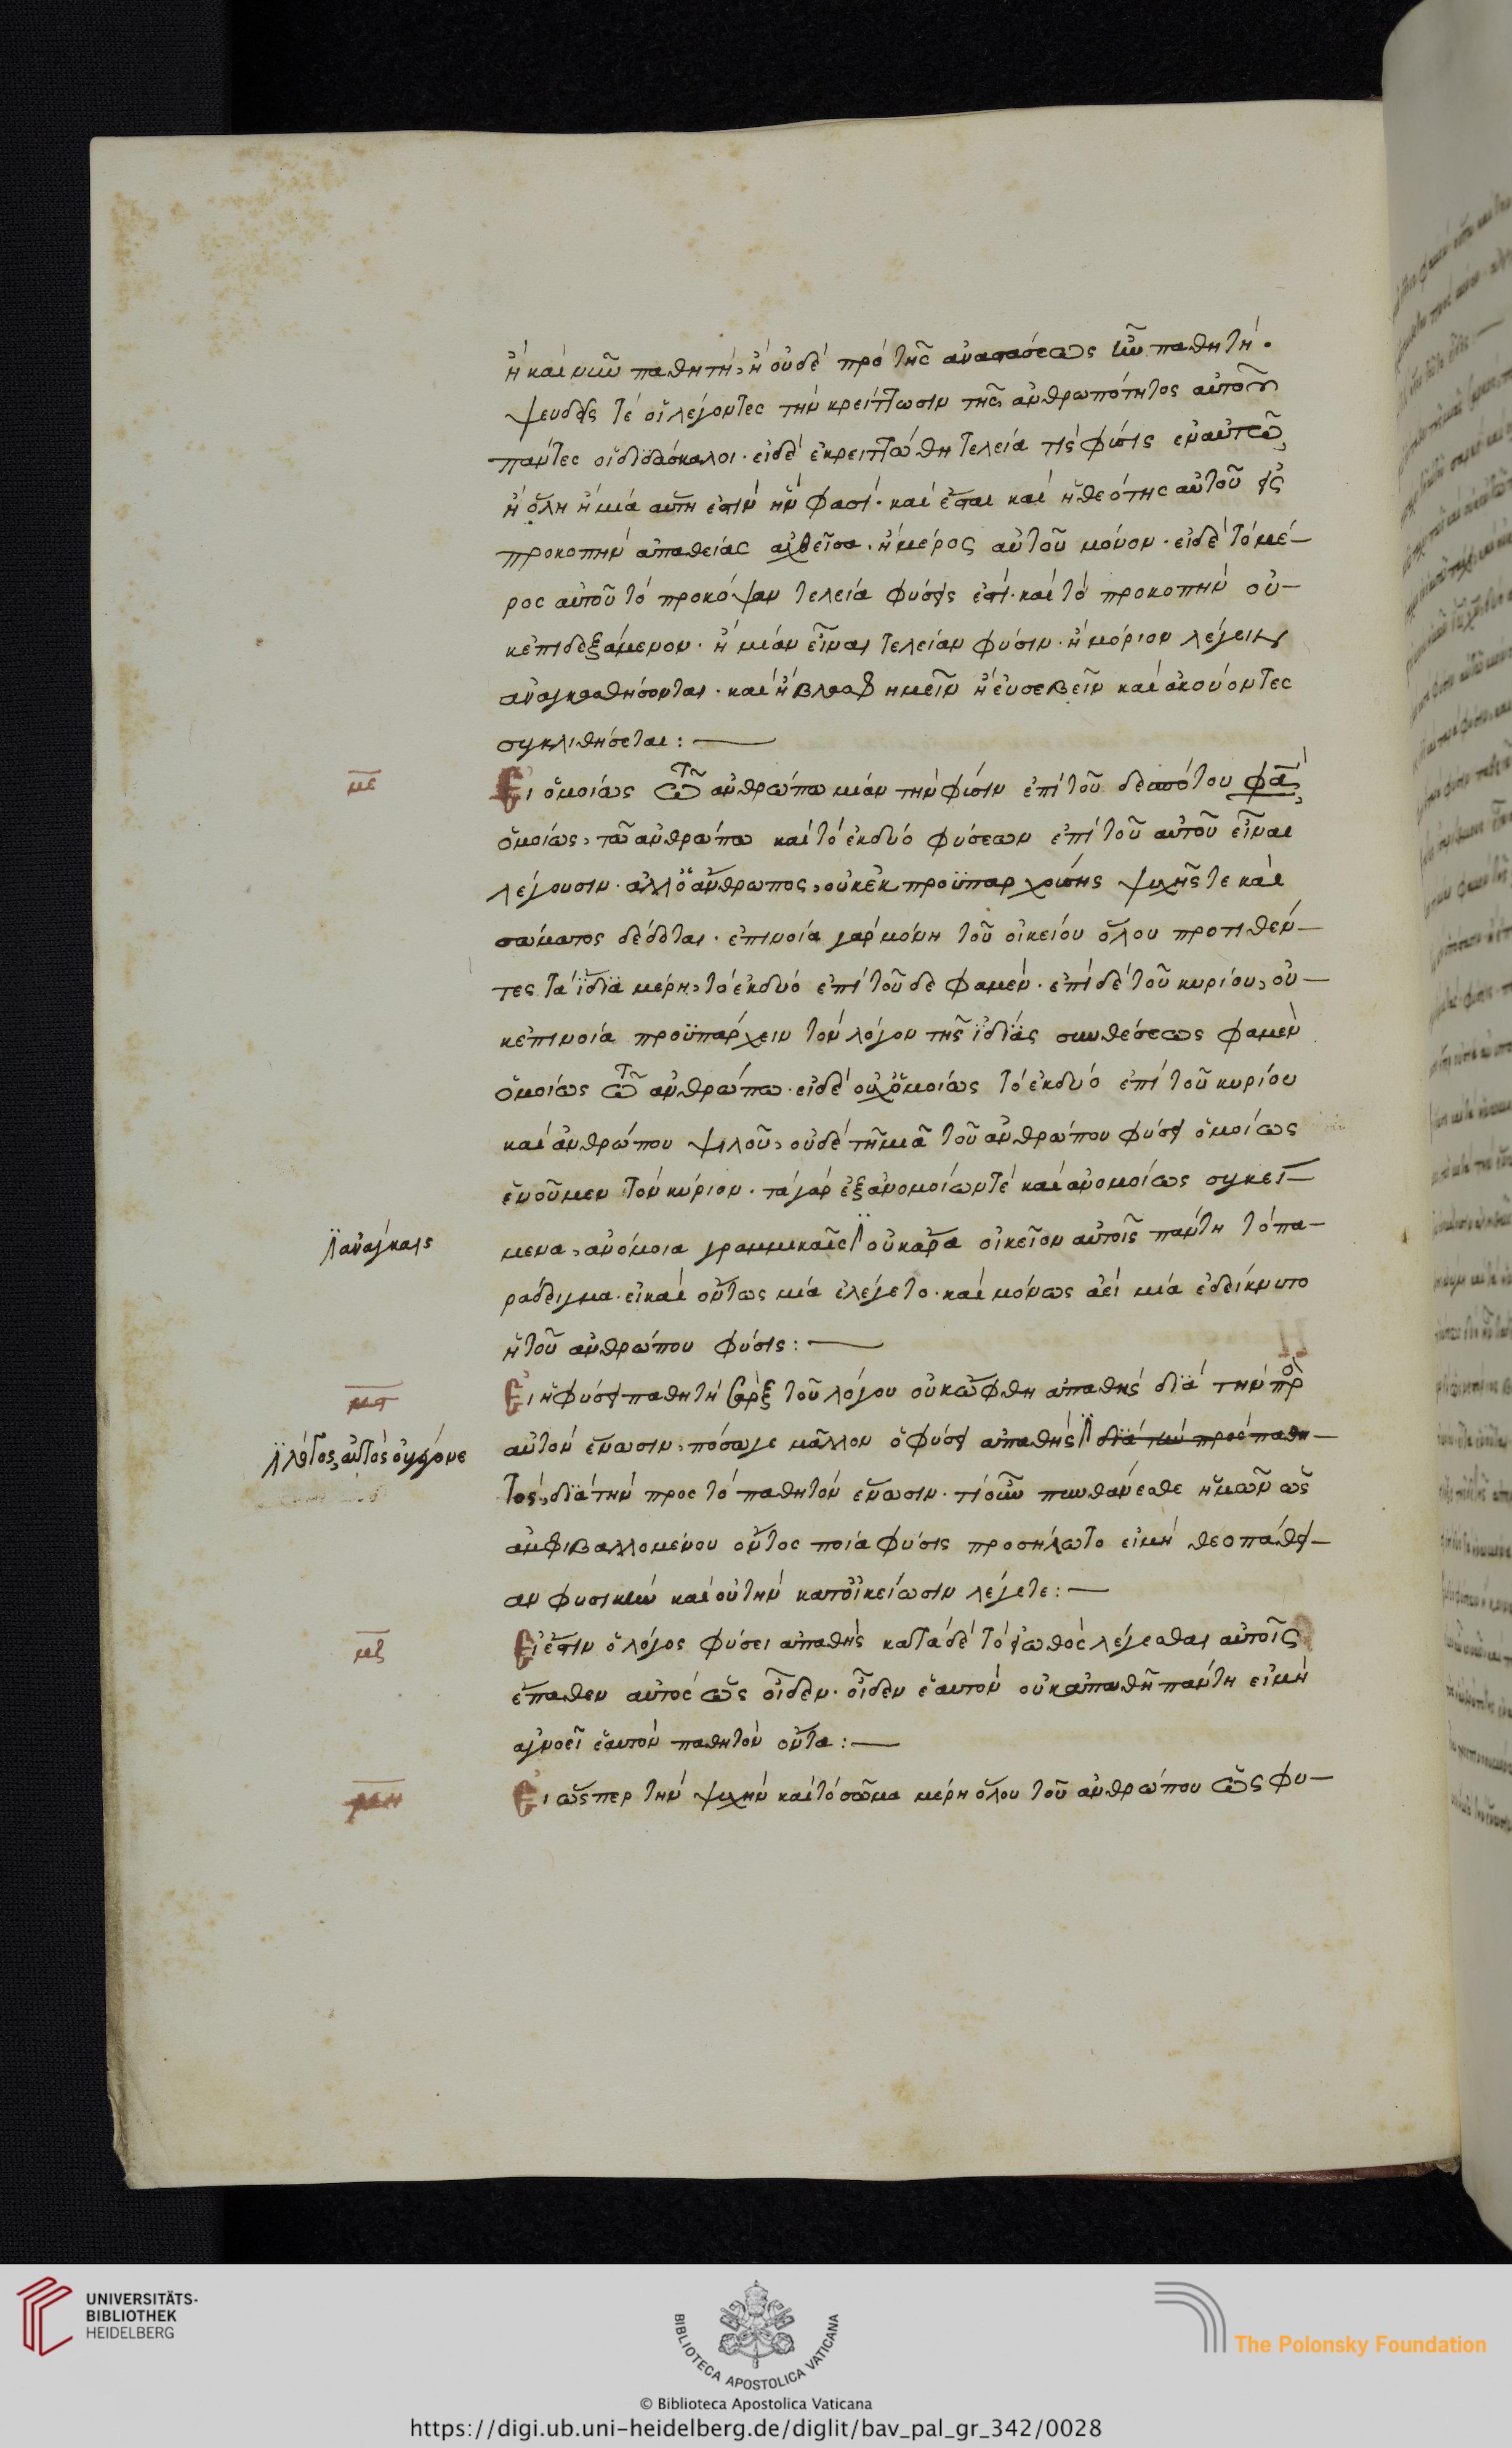 ἠ καὶ νῦν παθητή, ἠ οὐδὲ πρὸ τῆς ἀναστάσεως ὦν παθητή.
ψευδεῖς τέ οἱ λέγοντες τὴν κρείττωσιν τῆς ἀνθρωπότητος αὐτοῦ
πάντες οἱ διδάσκαλοι. εἰ δὲ ἐκρειττώθη τελεία τίς φύσις ἐν αὐτῶ,
ἠ ὅλη ἡ μία αὕτη ἐστὶν ἥν φασί. καὶ ἔσται καὶ ἡ θεότης αὐτοῦ εἰς
προκοπὴν ἀπαθείας ἀχθεῖσα. ἠ μέρος αὐτοῦ μόνον. εἰ δὲ τὸ μέ-
ρος αὐτοῦ τὸ προκόψαν τελεία φύσις ἐστί. καὶ τὸ προκοπὴν οὐ-
κ ἐπιδεξάμενον. ἠ μίαν εἶναι τελείαν φύσιν. ἠ μόριον λέγειν
ἀναγκασθήσονται. καὶ ἠ βλασφημεῖν ἠ εὐσεβεῖν καὶ ἀκούοντες
συγκλιθήσεται:
με
Εἰ ὁμοίως τῶ ἀνθρώπω μίαν τὴν φύσιν ἐπὶ τοῦ δεσπότου φασὶ,
ὁμοίως, τῶ ἀνθρώπω καὶ τὸ ἐκ δυό φύσεων ἐπὶ τοῦ αὐτοῦ εἶναι
λέγουσιν. ἀλλ' ὁ ἄνθρωπος, οὐκ ἐκ προϋπαρχούσης ψυχῆς τε καὶ
σώματος δέδεται. ἐπινοία γὰρ μόνη τοῦ οἰκείου ὅλου προτιθέν-
τες τὰ ἴδια μέρη, τὸ ἐκ δυό ἐπὶ τοῦδε φαμέν. ἐπὶ δὲ τοῦ κυρίου, οὐ-
κ ἐπινοία προϋπάρχειν τὸν λόγον τῆς ἰδίας συνθέσεως φαμὲν
ὁμοίως τῶ ἀνθρώπω. εἰ δὲ οὐχ ὁμοίως τὸ ἐκ δυό ἐπὶ τοῦ κυρίου
καὶ ἀνθρώπου ψιλοῦ, οὐδὲ τῆ μιᾶ τοῦ ἀνθρώπου φύσει ὁμοίως
ἑνοῦμεν τὸν κύριον. τὰ γὰρ ἐξ ἀνομοίων τὲ καὶ ἀνομοίως συγκεί-
ἀνάγκαις
μενα, ἀνόμοια γραμμικαῖς οὐκ ἄρα οἰκεῖον αὐτοῖς πάντη τὸ πα-
ράδειγμα. εἰ καὶ οὕτως μία ἐλέγετο. καὶ μόνως ἀεὶ μία ἐδείκνυτο
ἡ τοῦ ἀνθρώπου φύσις:
μϛ
Εἰ ἡ φύσει παθητὴ σὰρξ τοῦ λόγου οὐκ ὤφθη ἀπαθὴς διὰ τὴν πρὸς
αὐτὸν ἕνωσιν, πόσω γε μᾶλλον ὁ φύσει ἀπαθὴς διὰ τὴν πρὸς παθη-
λόγος, αὐτὸς οὐ γέγονε
τός, διὰ τὴν προς τὸ παθητὸν ἕνωσιν. τί οὖν πυνθάνεσθε ἡμῶν ὡς
ἀμφιβαλλομένου ὄντος ποία φύσις προσηλῶτο εἰ μὴ θεοπάθει-
αν φυσικὴν καὶ οὐ τὴν κατ' οἰκείωσιν λέγετε:
μζ
Εἰ ἐστιν ὁ λόγος φύσει ἀπαθὴς κατὰ δὲ τὸ εἰωθὸς λέγεσθαι αὐτοῖς
ἔπαθεν αὐτὸς ὡς οἶδεν. οἶδεν ἑαυτὸν οὐκ ἀπαθῆ πάντη εἰ μὴ
ἀγνοεῖ ἑαυτὸν παθητὸν ὄντα:
μη
Εἰ ὥσπερ τὴν ψυχὴν καὶ τὸ σῶμα μέρη ὅλου τοῦ ἀνθρώπου ὡς φυ-
UNIVERSITÄTS-
BIBLIOTHEK
HEIDELBERG
BIBLIOTECA APOSTOLICA VATICANA
The Polonsky Foundation
© Biblioteca Apostolica Vaticana
https://digi.ub.uni-heidelberg.de/diglit/bav_pal_gr_342/0028